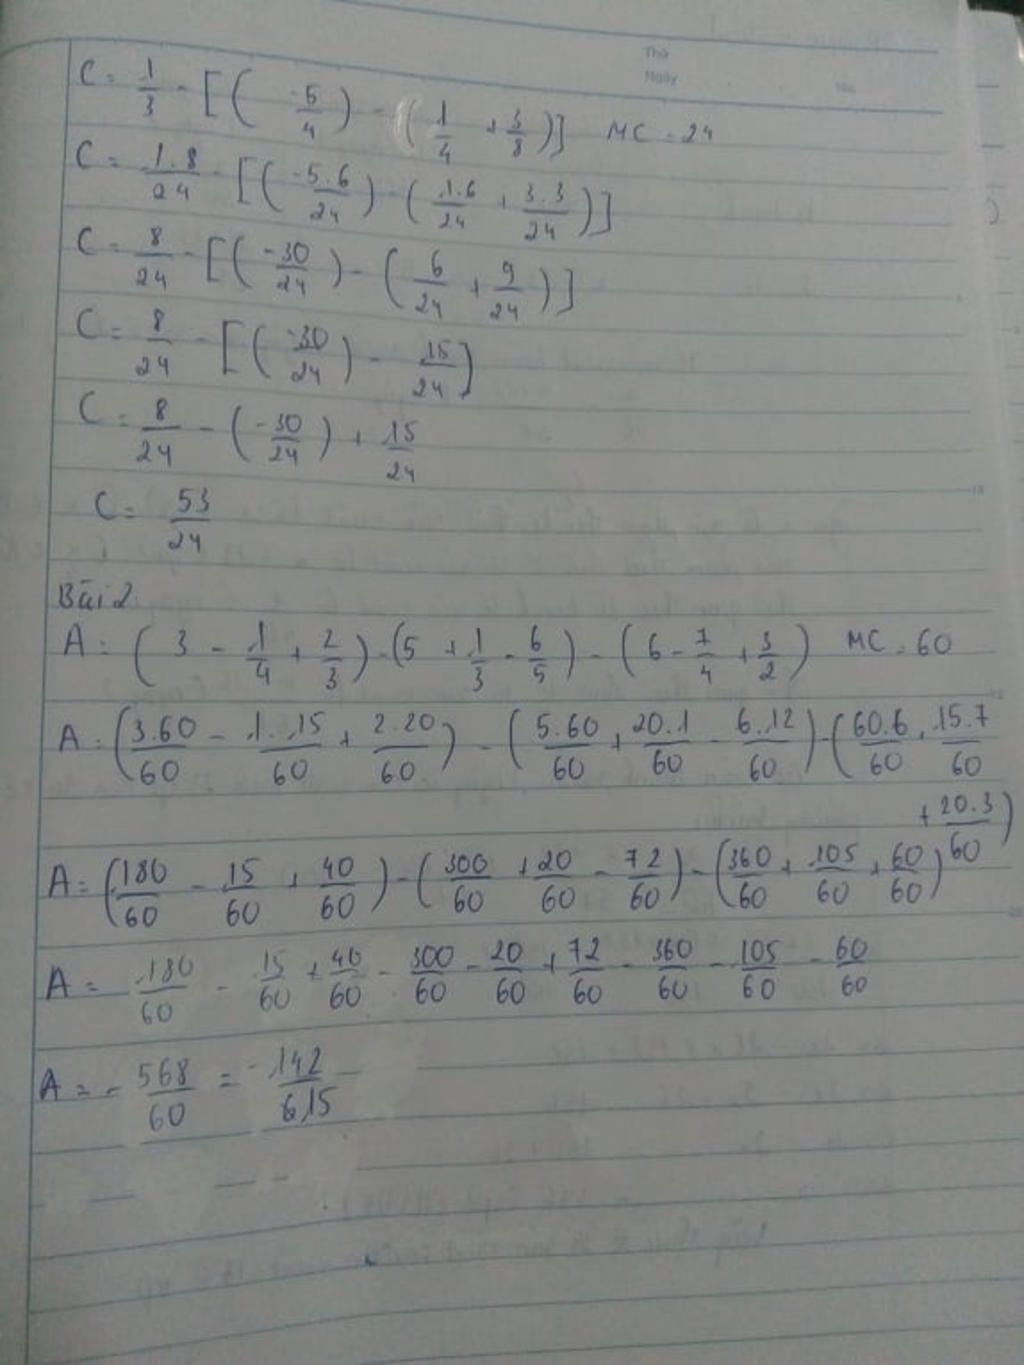 Thứ
Ngày
No.
C = 1/3 - [(-5/4) - (1/4 + 3/8)] MC = 24
C = 1.8/24 - [(-5.6/24) - (1.6/24 + 3.3/24)]
C = 8/24 - [(-30/24) - (6/24 + 9/24)]
C = 8/24 - [(-30/24) - 15/24]
C = 8/24 - (-30/24) + 15/24
C = 53/24
Bài 2
A = (3 - 1/4 + 2/3) - (5 + 1/3 - 6/5) - (6 - 7/4 + 3/2) MC = 60
A = (3.60/60 - 1.15/60 + 2.20/60) - (5.60/60 + 20.1/60 - 6.12/60) - (60.6/60 + 15.7/60
+ 20.3/60)
A = (180/60 - 15/60 + 40/60) - (300/60 + 20/60 - 72/60) - (360/60 + 105/60 + 60/60)
A = 180/60 - 15/60 + 40/60 - 300/60 - 20/60 + 72/60 - 360/60 - 105/60 - 60/60
A = - 568/60 = -142/15